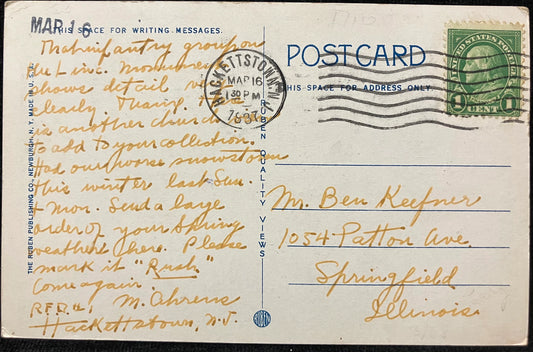 MAR 16
THIS SPACE FOR WRITING MESSAGES.
That infantry group on
the Linc. Monument
shows detail very
clearly. Thanks. Here
is another church
to add to your collection.
Had our worse snowstorm
this winter last Sun.
& Mon. Send a large
order of your Spring
weather here. Please
mark it "Rush"
Come again.
R.F.D. #1, M. Ahrens
Hackettstown, N.J.
THE RUBEN PUBLISHING CO., NEWBURGH, N. Y. MADE IN U. S. A.
RUBEN QUALITY VIEWS
RUBEN
POST CARD
THIS SPACE FOR ADDRESS ONLY
HACKETTSTOWN N.J.
MAR 16
1 30 PM
1937
UNITED STATES POSTAGE
1 CENT 1
Mr. Ben Keefner
1054 Patton Ave
Springfield
Illinois